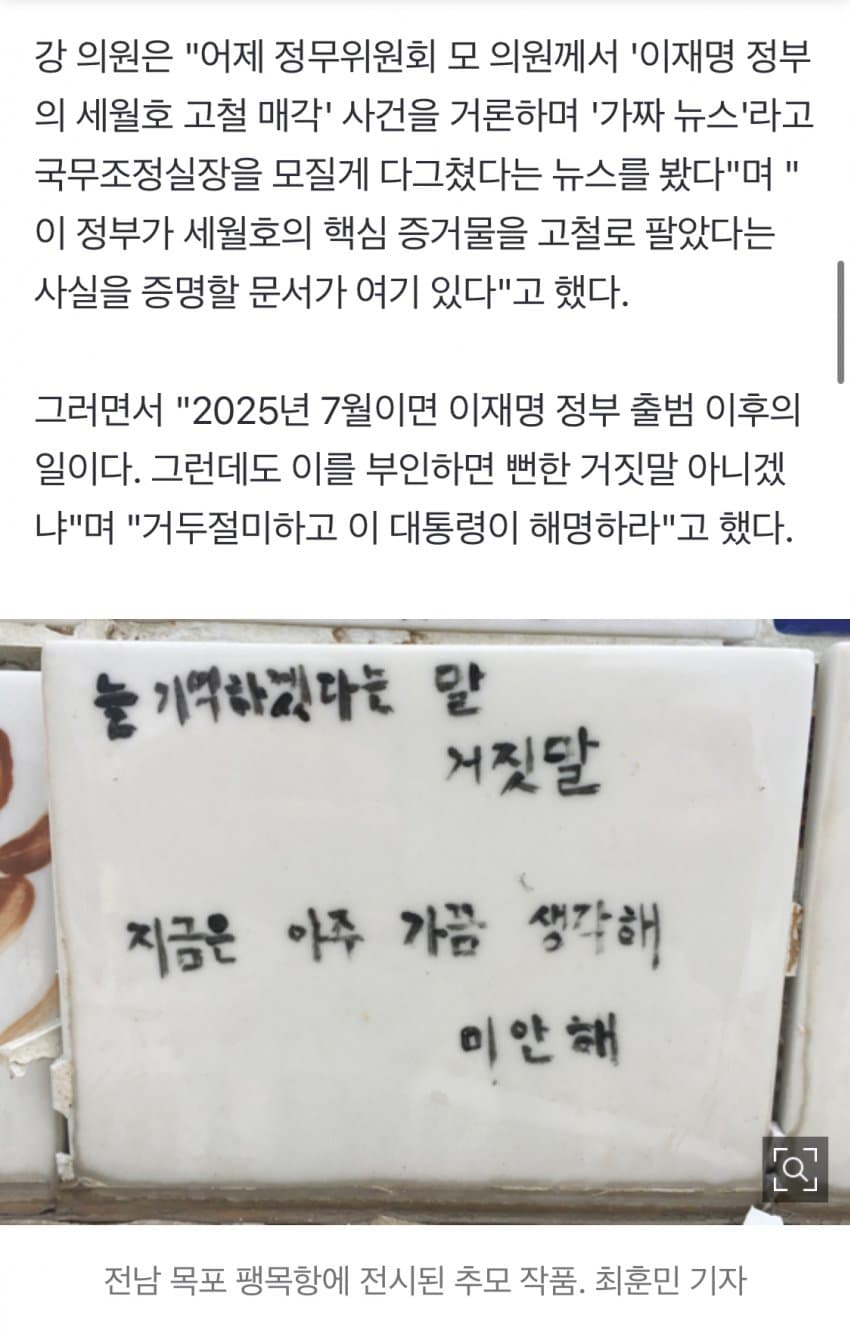 강 의원은 "어제 정무위원회 모 의원께서 '이재명 정부
의 세월호 고철 매각' 사건을 거론하며 '가짜 뉴스'라고
국무조정실장을 모질게 다그쳤다는 뉴스를 봤다"며 "
이 정부가 세월호의 핵심 증거물을 고철로 팔았다는
사실을 증명할 문서가 여기 있다"고 했다.
그러면서 "2025년 7월이면 이재명 정부 출범 이후의
일이다. 그런데도 이를 부인하면 뻔한 거짓말 아니겠
냐"며 "거두절미하고 이 대통령이 해명하라"고 했다.
늘 기억하겠다는 말
거짓말
지금은 아주 가끔 생각해
미안해
전남 목포 팽목항에 전시된 추모 작품. 최훈민 기자